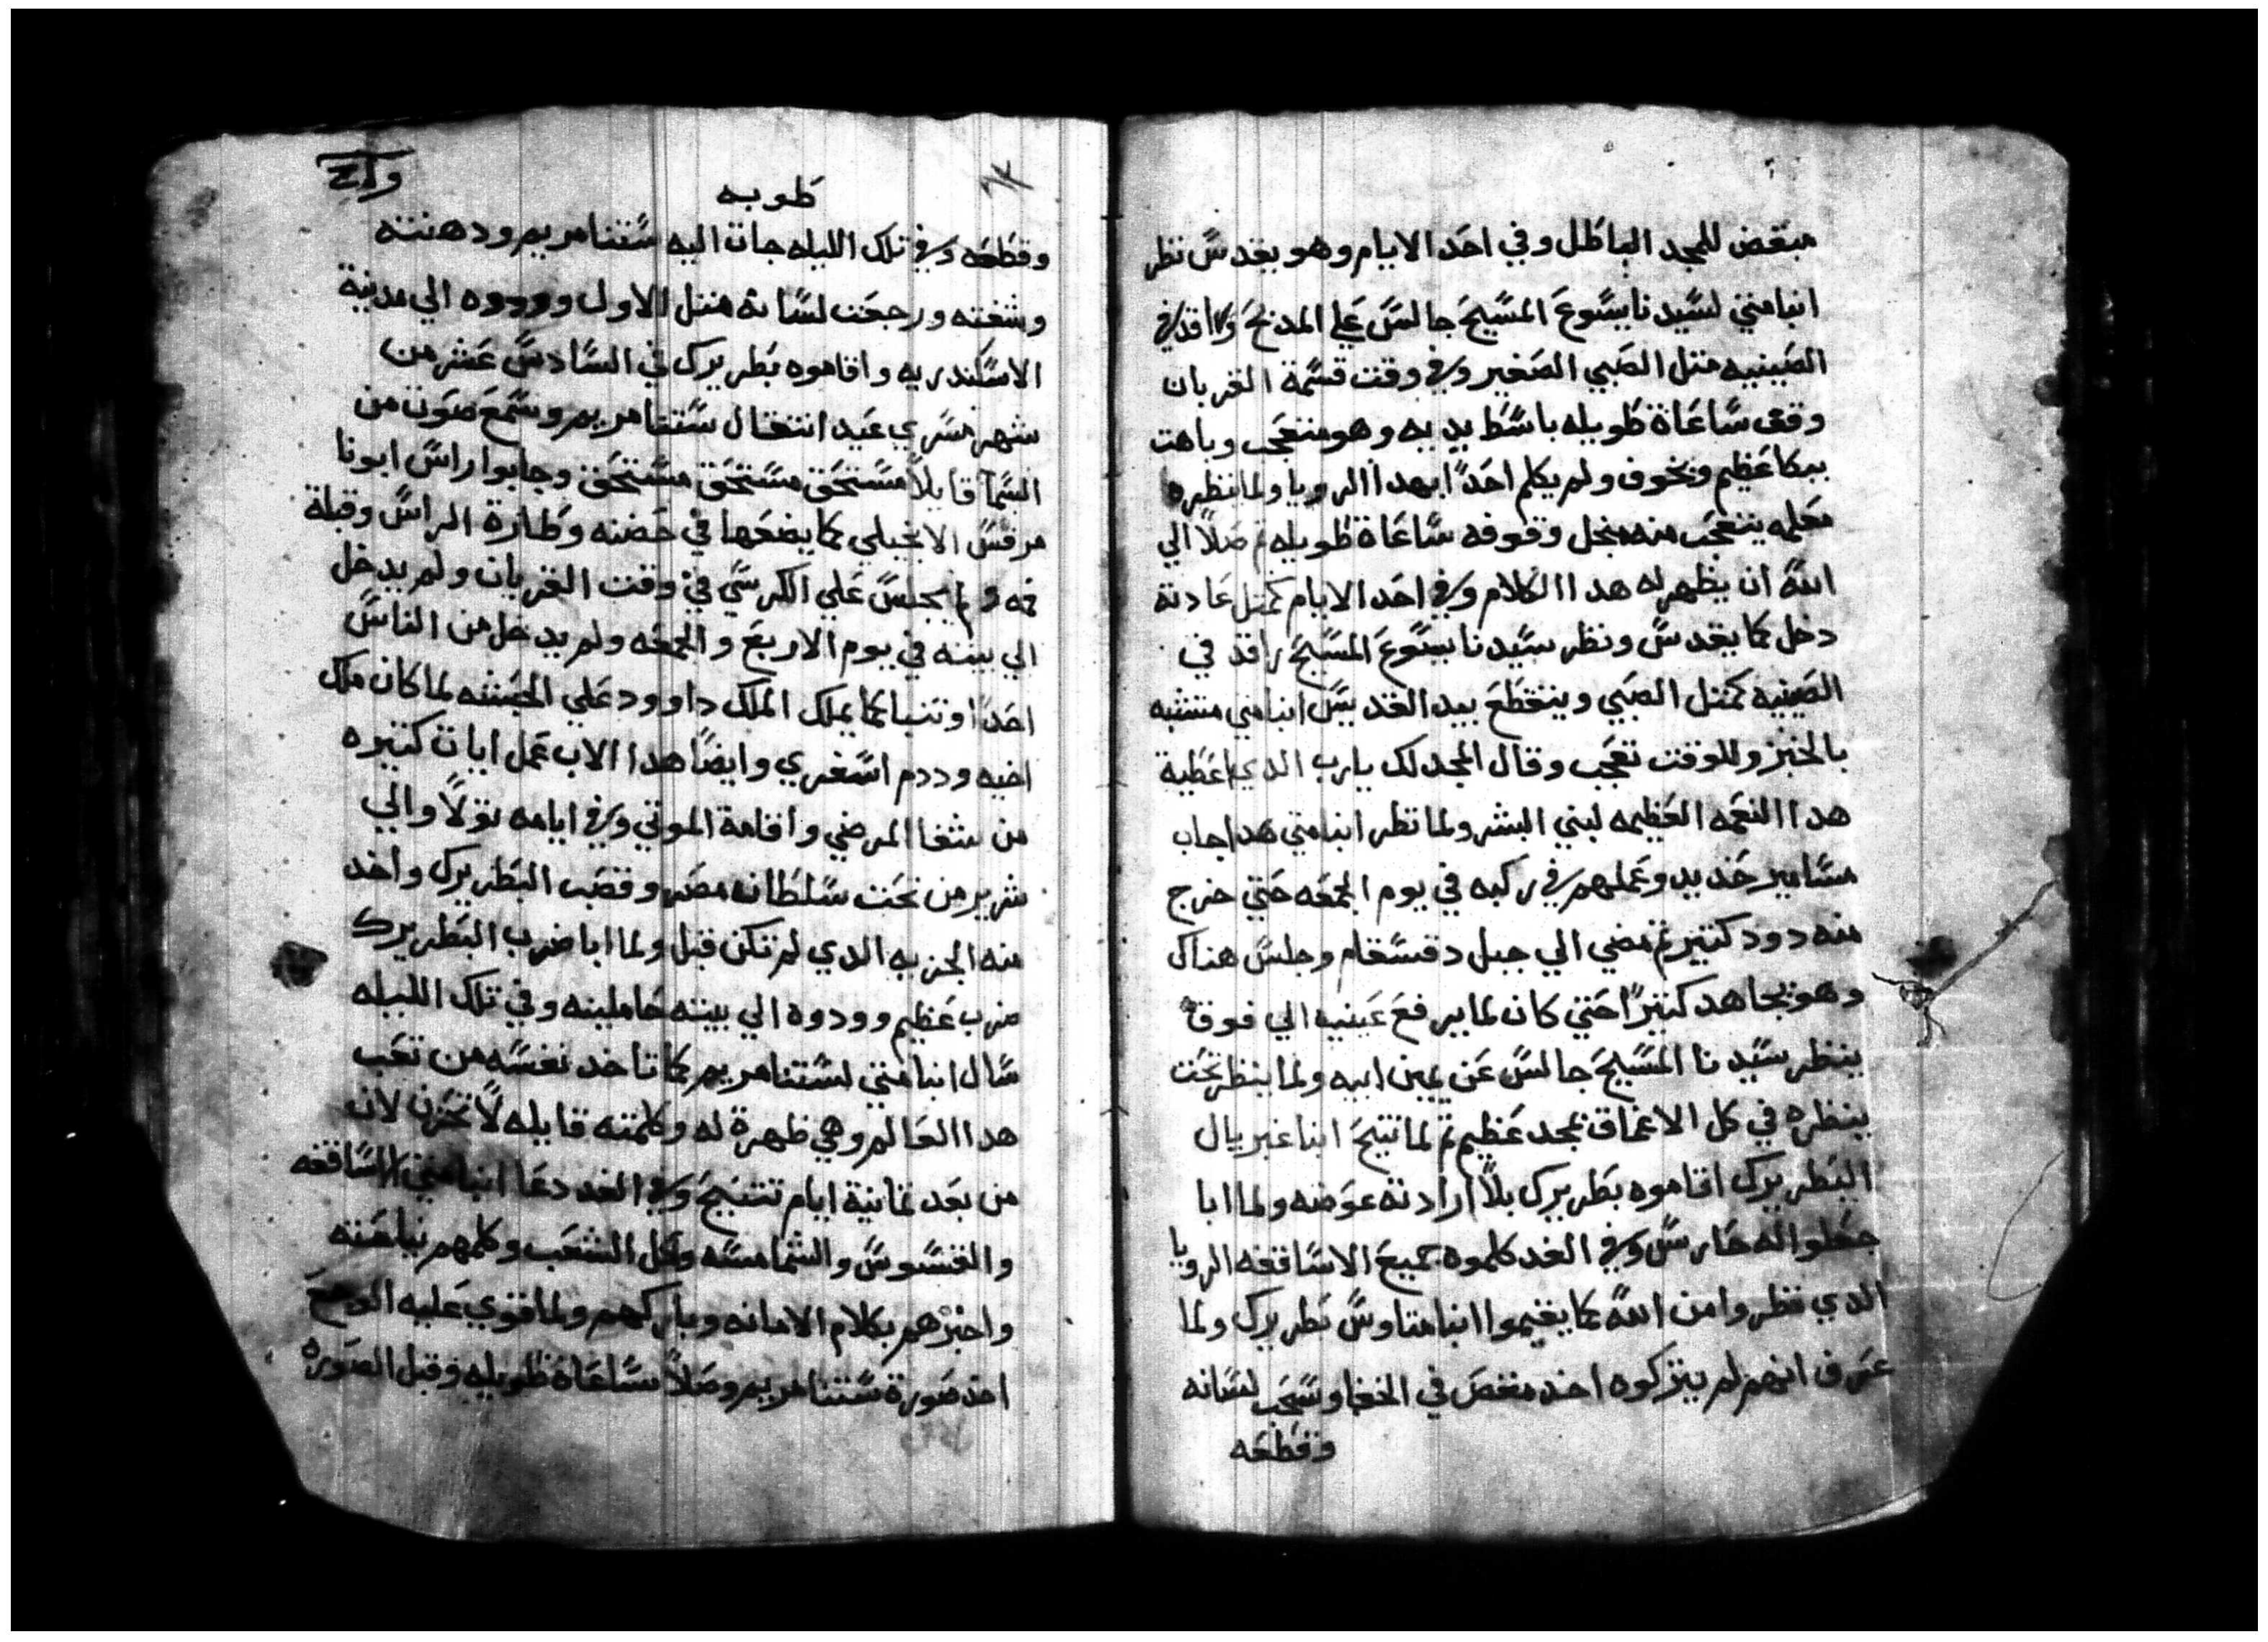 مبغض للمجد الباطل وفي احد الايام وهو يقدس نظر
انبامتي لسيدنا يسوع المسيح جالس علي المدبح وراقد في
الصينيه متل الصبي الصغير وفي وقت قسمة القربان
وقف ساعاة طويله باسط يديه وهو متعجب وباهت
ببكا عظيم وبخوف ولم يكلم احدًا بهدا الرويا ولما ينظره
معلمه يتعجب منه من وقوفه ساعاة طويله تم صلا الي
الله ان يظهر له هدا الكلام وفي احد الايام كمتل عادته
دخل كما يقدس ونظر سيدنا يسوع المسيح راقد في
الصينيه كمتل الصبي وينقطع بيد القديس انبامتي متشبه
بالخبز وللوقت تعجب وقال المجد لك يارب الدي اعطية
هدا النعمه العظيمه لبني البشر ولما نظر انبامتي هدا جاب
مسامير حديد وعملهم في ركبه في يوم الجمعه حتي خرج
منه دود كتير تم مضي الي جبل دقسقام وجلس هناك
وهو يجاهد كتيرًا حتي كان لما يرفع عينيه الي فوق
ينظر سيدنا المسيح جالس عن يمين ابيه ولما ينظر تحت
ينظره في كل الاعماق بمجد عظيم تم لما تنيح انبا غبريال
البطريرك اقاموه بطريرك بلا ارادته عوضه ولما ابا
جعلوا له حارس وفي الغد كلموه جميع الاساقفه الرويا
الدي نظروا من الله كما يقيموا انبا متاوس بطريرك ولما
عرف انهم لم يتركوه اخد مقص في الخفا وسحب لسانه
وقطعه
وا ح
طوبه
وقطعه وفي تلك الليله جات اليه ستنا مريم ودهنته
وشفته ورجعت لسانه متل الاول وودوه الي مدينة
الاسكندريه واقاموه بطريرك في السادس عشر من
شهر مسري عيد انتقال ستنا مريم وسمع صوت من
السما قايلًا مستحق مستحق مستحق وجابوا راس ابونا
مرقس الانجيلي كما يضعها في حضنه وطارة الراس وقبلة
فمه ولم يجلس علي الكرسي في وقت القربان ولم يدخل
الي بيته في يوم الاربع والجمعه ولم يدخل من الناس
احدًا وتنبا كما يملك الملك داوود علي الحبشه لما كان ملك
اخيه وددم اسغري وايضًا هدا الاب عمل ايات كتيره
من شفا المرضي واقامة الموتي وفي ايامه تولا والي
شرير من تحت سلطانه مصر وقصب البطريرك واخد
منه الجزيه الدي لم تكن قبل ولما ابا ضرب البطريرك
ضرب عظيم وودوه الي بيته حاملينه وفي تلك الليله
سال انبامتي لستنا مريم كما تاخد نفسه من تعب
هدا العالم وهي ظهرة له وكلمته قايله لا تحزن لان
من بعد تمانية ايام تتنيح وفي الغد دعا انبامتي الاساقفه
والقسوس والشمامسه وكل الشعب وكلمهم بنياحته
واخبرهم بكلام الامانه وباركهم ولما قوي عليه الوجع
اخد صورة ستنا مريم وصلا ساعاة طويله وقبل الصوره